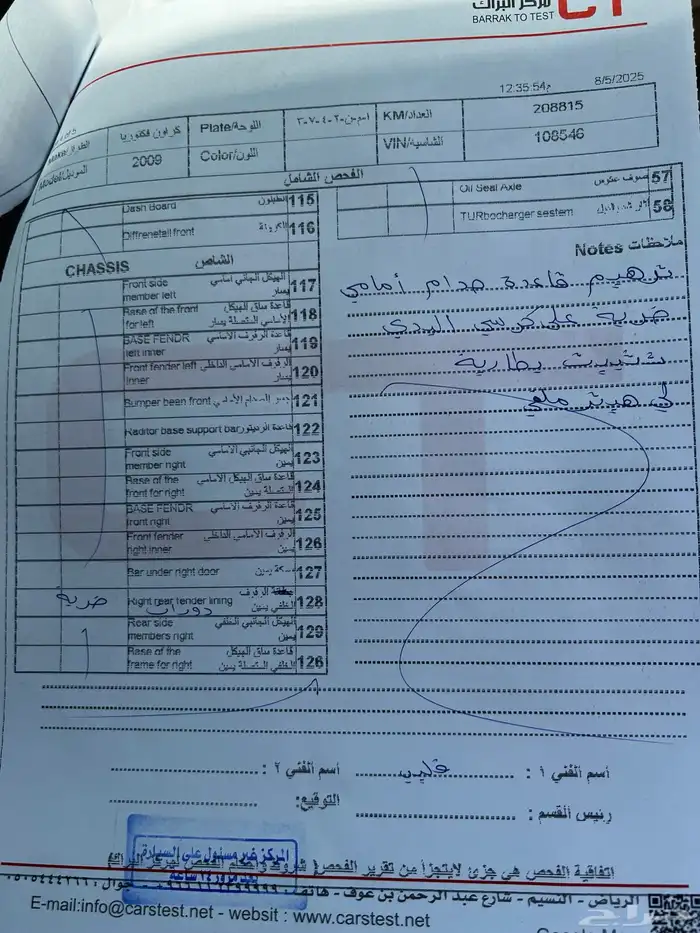 مركز البراك
BARRAK TO TEST
CT
8/5/2025
12:35:54م
اللوحة/Plate
KM/العداد
208815
كراون فكتوريا
2009
اللون/Color
VIN/الشاسية
108546
الموديل/Model
الفحص الشامل
Dash Board
الطبلون
115
Diffrenetail front
116
Oil Seal Axle
صوف عكوس
57
TURbocharger sestem
58
ملاحظات Notes
ترهيم قاعدة صدام أمامي
ضربة على كرسي البدي
بطارية
CHASSIS
الشاص
Front side member left
الهيكل الجانبي اساسي يسار
117
Base of the front for left
قاعدة ساق الهيكل الأساسي المتصلة يسار
118
BASE FENDR left inner
قاعدة الرفرف الأساسي يسار
119
Front fender left inner
الرفرف الاساسي الداخلي يسار
120
Bumper been front
جسر الصدام الأمامي
121
Raditor base support bar
قاعدة الرديتور
122
Front side member right
الهيكل الجانبي الاساسي يمين
123
Base of the front for right
قاعدة ساق الهيكل الاساسي المتصلة يمين
124
BASE FENDR front right
قاعدة الرفرف الاساسي يمين
125
Front fender right inner
الرفرف الاساسي الداخلي يمين
126
Bar under right door
مسكة يمين
127
ضربة
Right rear fender lining
الرفرف الخلفي يمين
128
Rear side members right
الهيكل الجانبي الخلفي يمين
129
Base of the frame for right
قاعدة ساق الهيكل الخلفي المتصلة يمين
126
أسم الفني ١ :
أسم الفني ٢ :
رئيس القسم :
التوقيع:
المركز غير مسئول على السيارة
بعد مرور ١٤ ساعه
اتفاقية الفحص هي جزئ لايتجزأ من تقرير الفحص
الرياض - النسيم - شارع عبد الرحمن بن عوف - هاتف
E-mail:info@carstest.net - websit : www.carstest.net
حراج